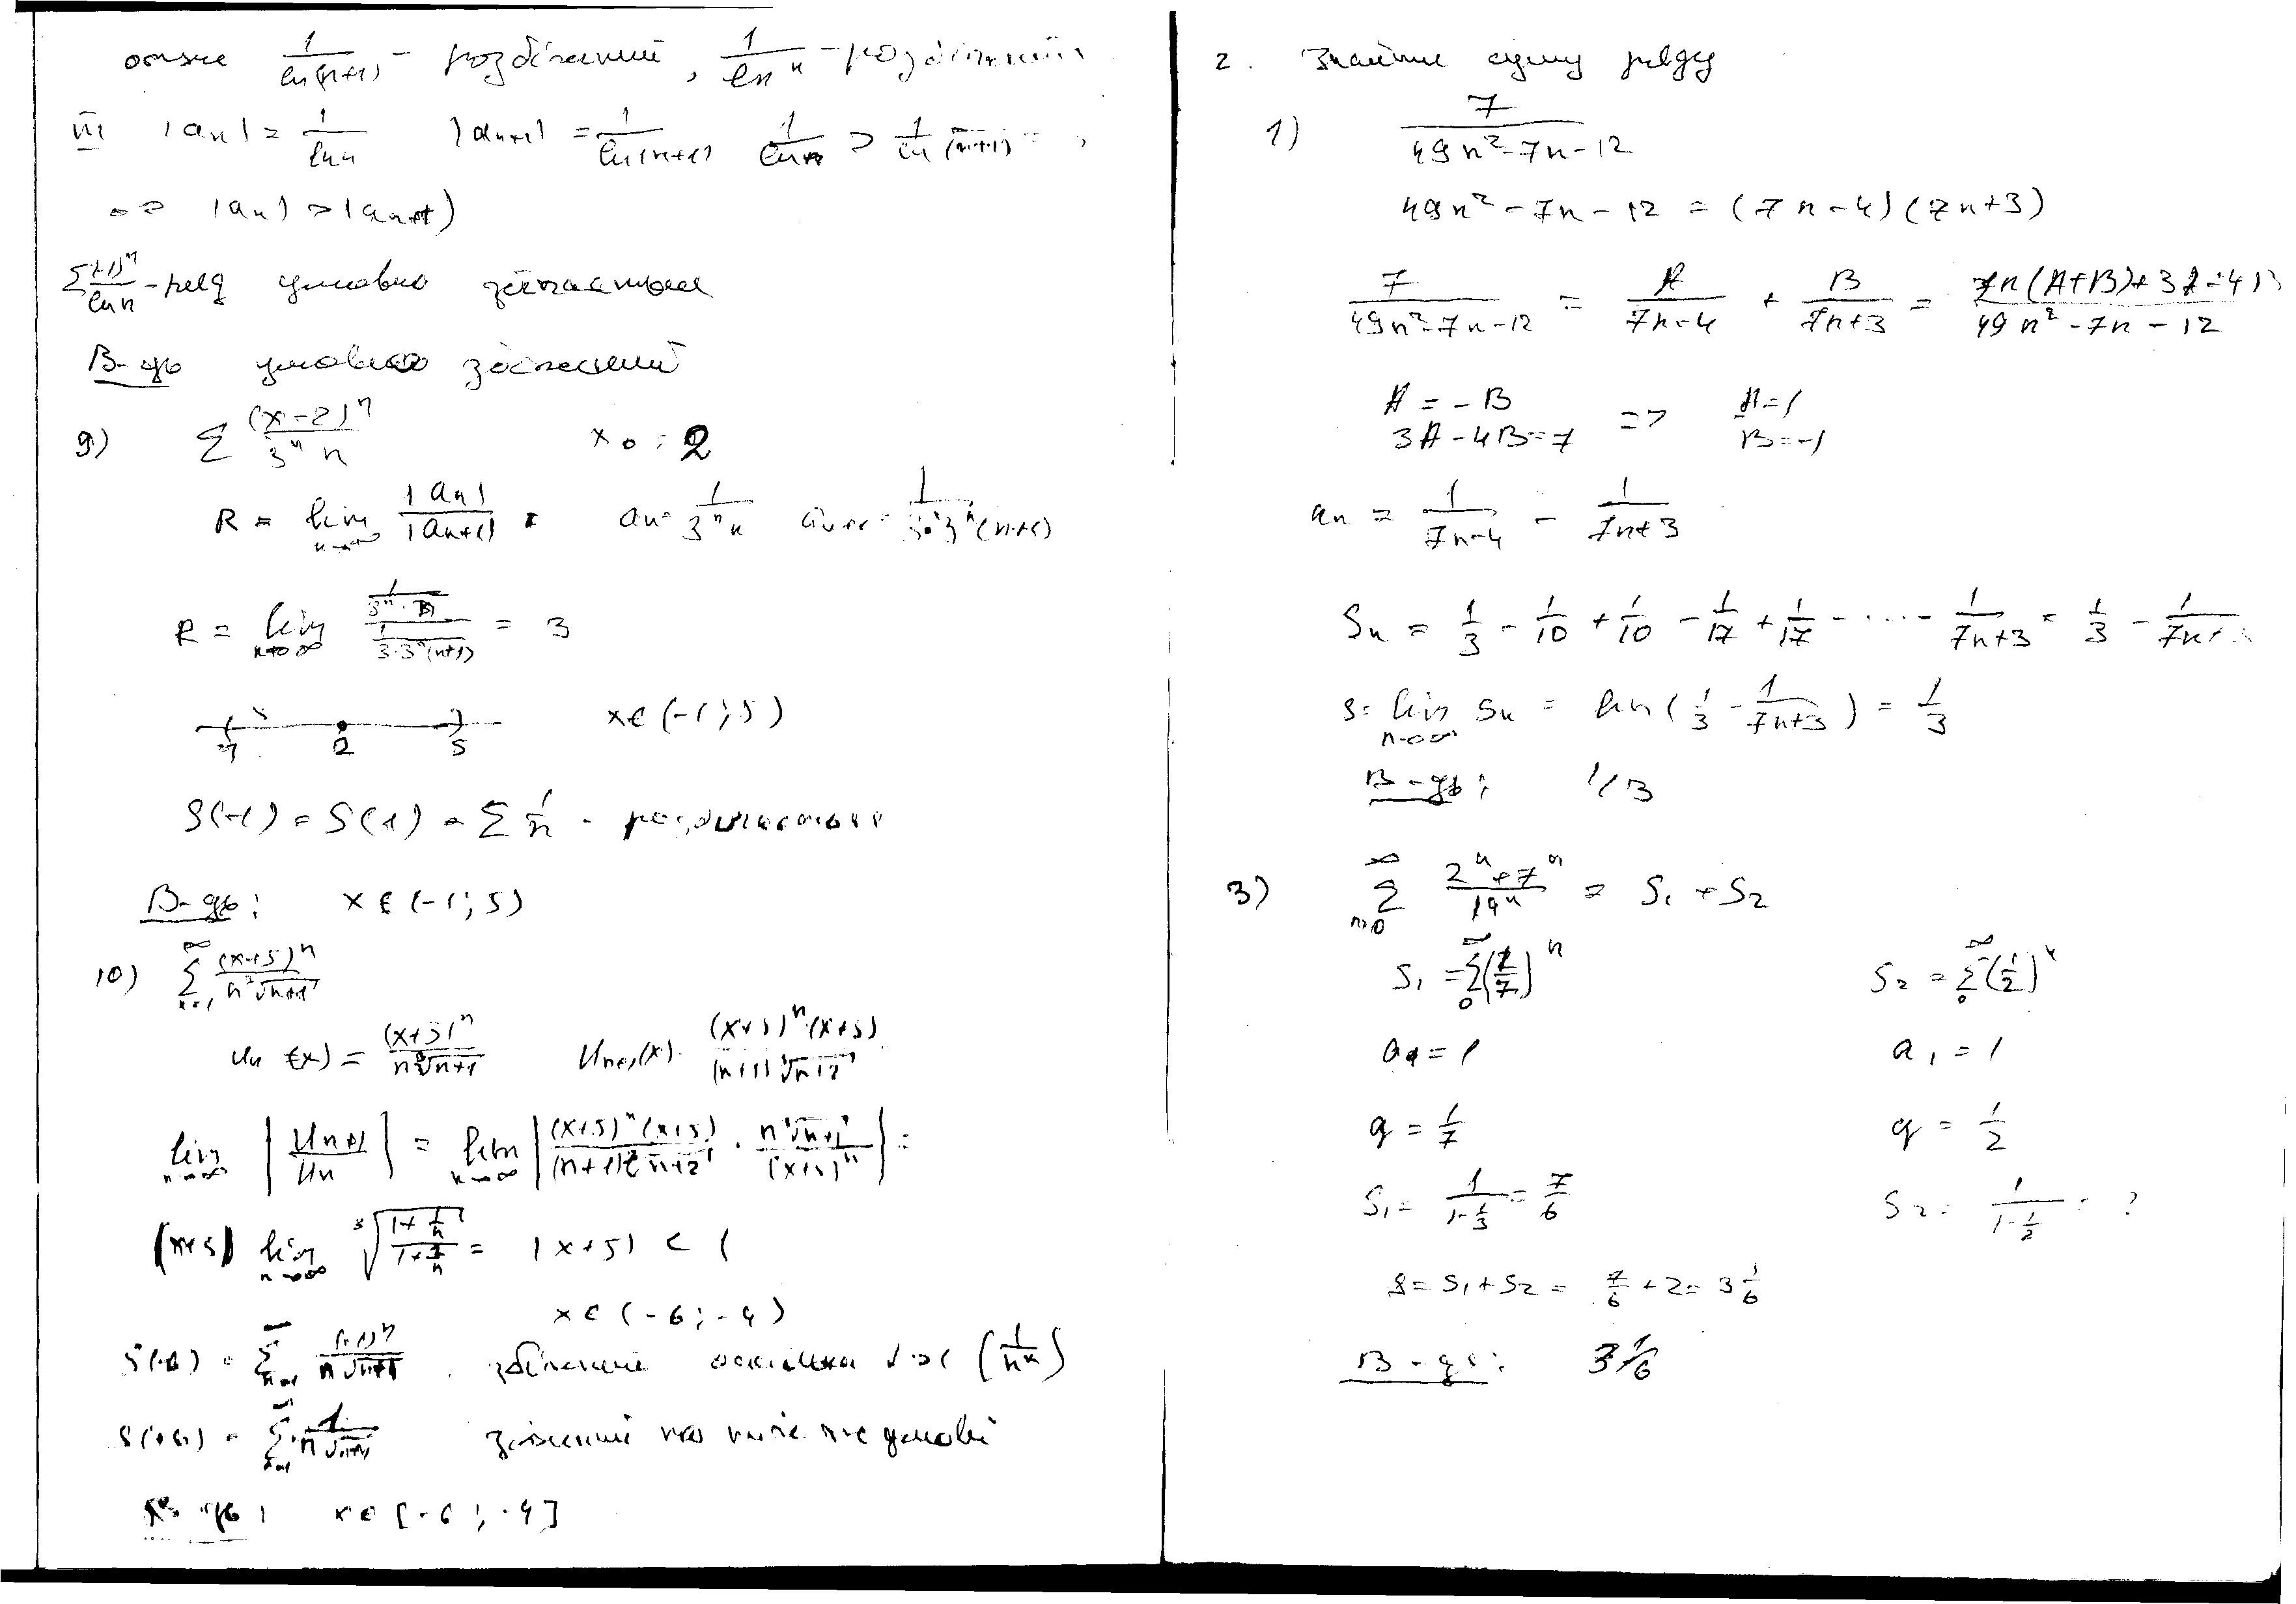 отже 1/ln(n+1) - розбіжний, 1/ln n - розбіжний
III |an| = 1/ln n |an+1| = 1/ln(n+1) 1/ln n > 1/ln(n+1) =>
=> |an| > |an+1|
Σ (-1)^n/ln n - ряд умовно збігається
В-дь умовно збіжний
9) Σ (x-2)^n/(3^n n) x0 = 2
R = lim n→∞ |an|/|an+1| an = 1/(3^n n) an+1 = 1/(3·3^n(n+1))
R = lim n→∞ (1/(3^n·n))/(1/(3·3^n(n+1))) = 3
-1 2 5 x∈(-1;5)
S(-1) = S(1) = Σ 1/n - розбігається
В-дь: x∈(-1;5)
10) ∞Σn=1 (x+5)^n/(n ³√(n+1))
un(x) = (x+5)^n/(n ³√(n+1)) un+1(x) = (x+5)^n(x+5)/((n+1) ³√(n+2))
lim n→∞ |un+1/un| = lim n→∞ |(x+5)^n(x+5)/((n+1) ³√(n+2)) · n ³√(n+1)/(x+5)^n| =
|x+5| lim n→∞ ³√((1+1/n)/(1+2/n)) = |x+5| < 1
x∈(-6;-4)
S(-6) = ∞Σn=1 (-1)^n/(n√(n+1)) збіжний оскільки α>1 (1/n^α)
= ∞Σn=1 1/(n√(n+1)) збіжний умові
В-дь: x∈[-6;-4]
2. Знайти суму ряду
1) 7/(49n²-7n-12)
49n²-7n-12 = (7n-4)(7n+3)
7/(49n²-7n-12) = A/(7n-4) + B/(7n+3) = (7n(A+B)+3A-4B)/(49n²-7n-12)
A = -B => A=1
3A-4B=7 B=-1
an = 1/(7n-4) - 1/(7n+3)
Sn = 1/3 - 1/10 + 1/10 - 1/17 + 1/17 - ... - 1/(7n+3) = 1/3 - 1/(7n+3)
S = lim n→∞ Sn = lim(1/3 - 1/(7n+3)) = 1/3
В-дь: 1/3
3) ∞Σn=0 (2^n+7^n)/14^n = S1 + S2
S1 = ∞Σ0 (1/7)^n S2 = ∞Σ0 (1/2)^n
a1 = 1 a1 = 1
q = 1/7 q = 1/2
S1 = 1/(1-1/3) = 7/6 S2 = 1/(1-1/2) = 2
S = S1 + S2 = 7/6 + 2 = 3 1/6
В-дь: 3 1/6